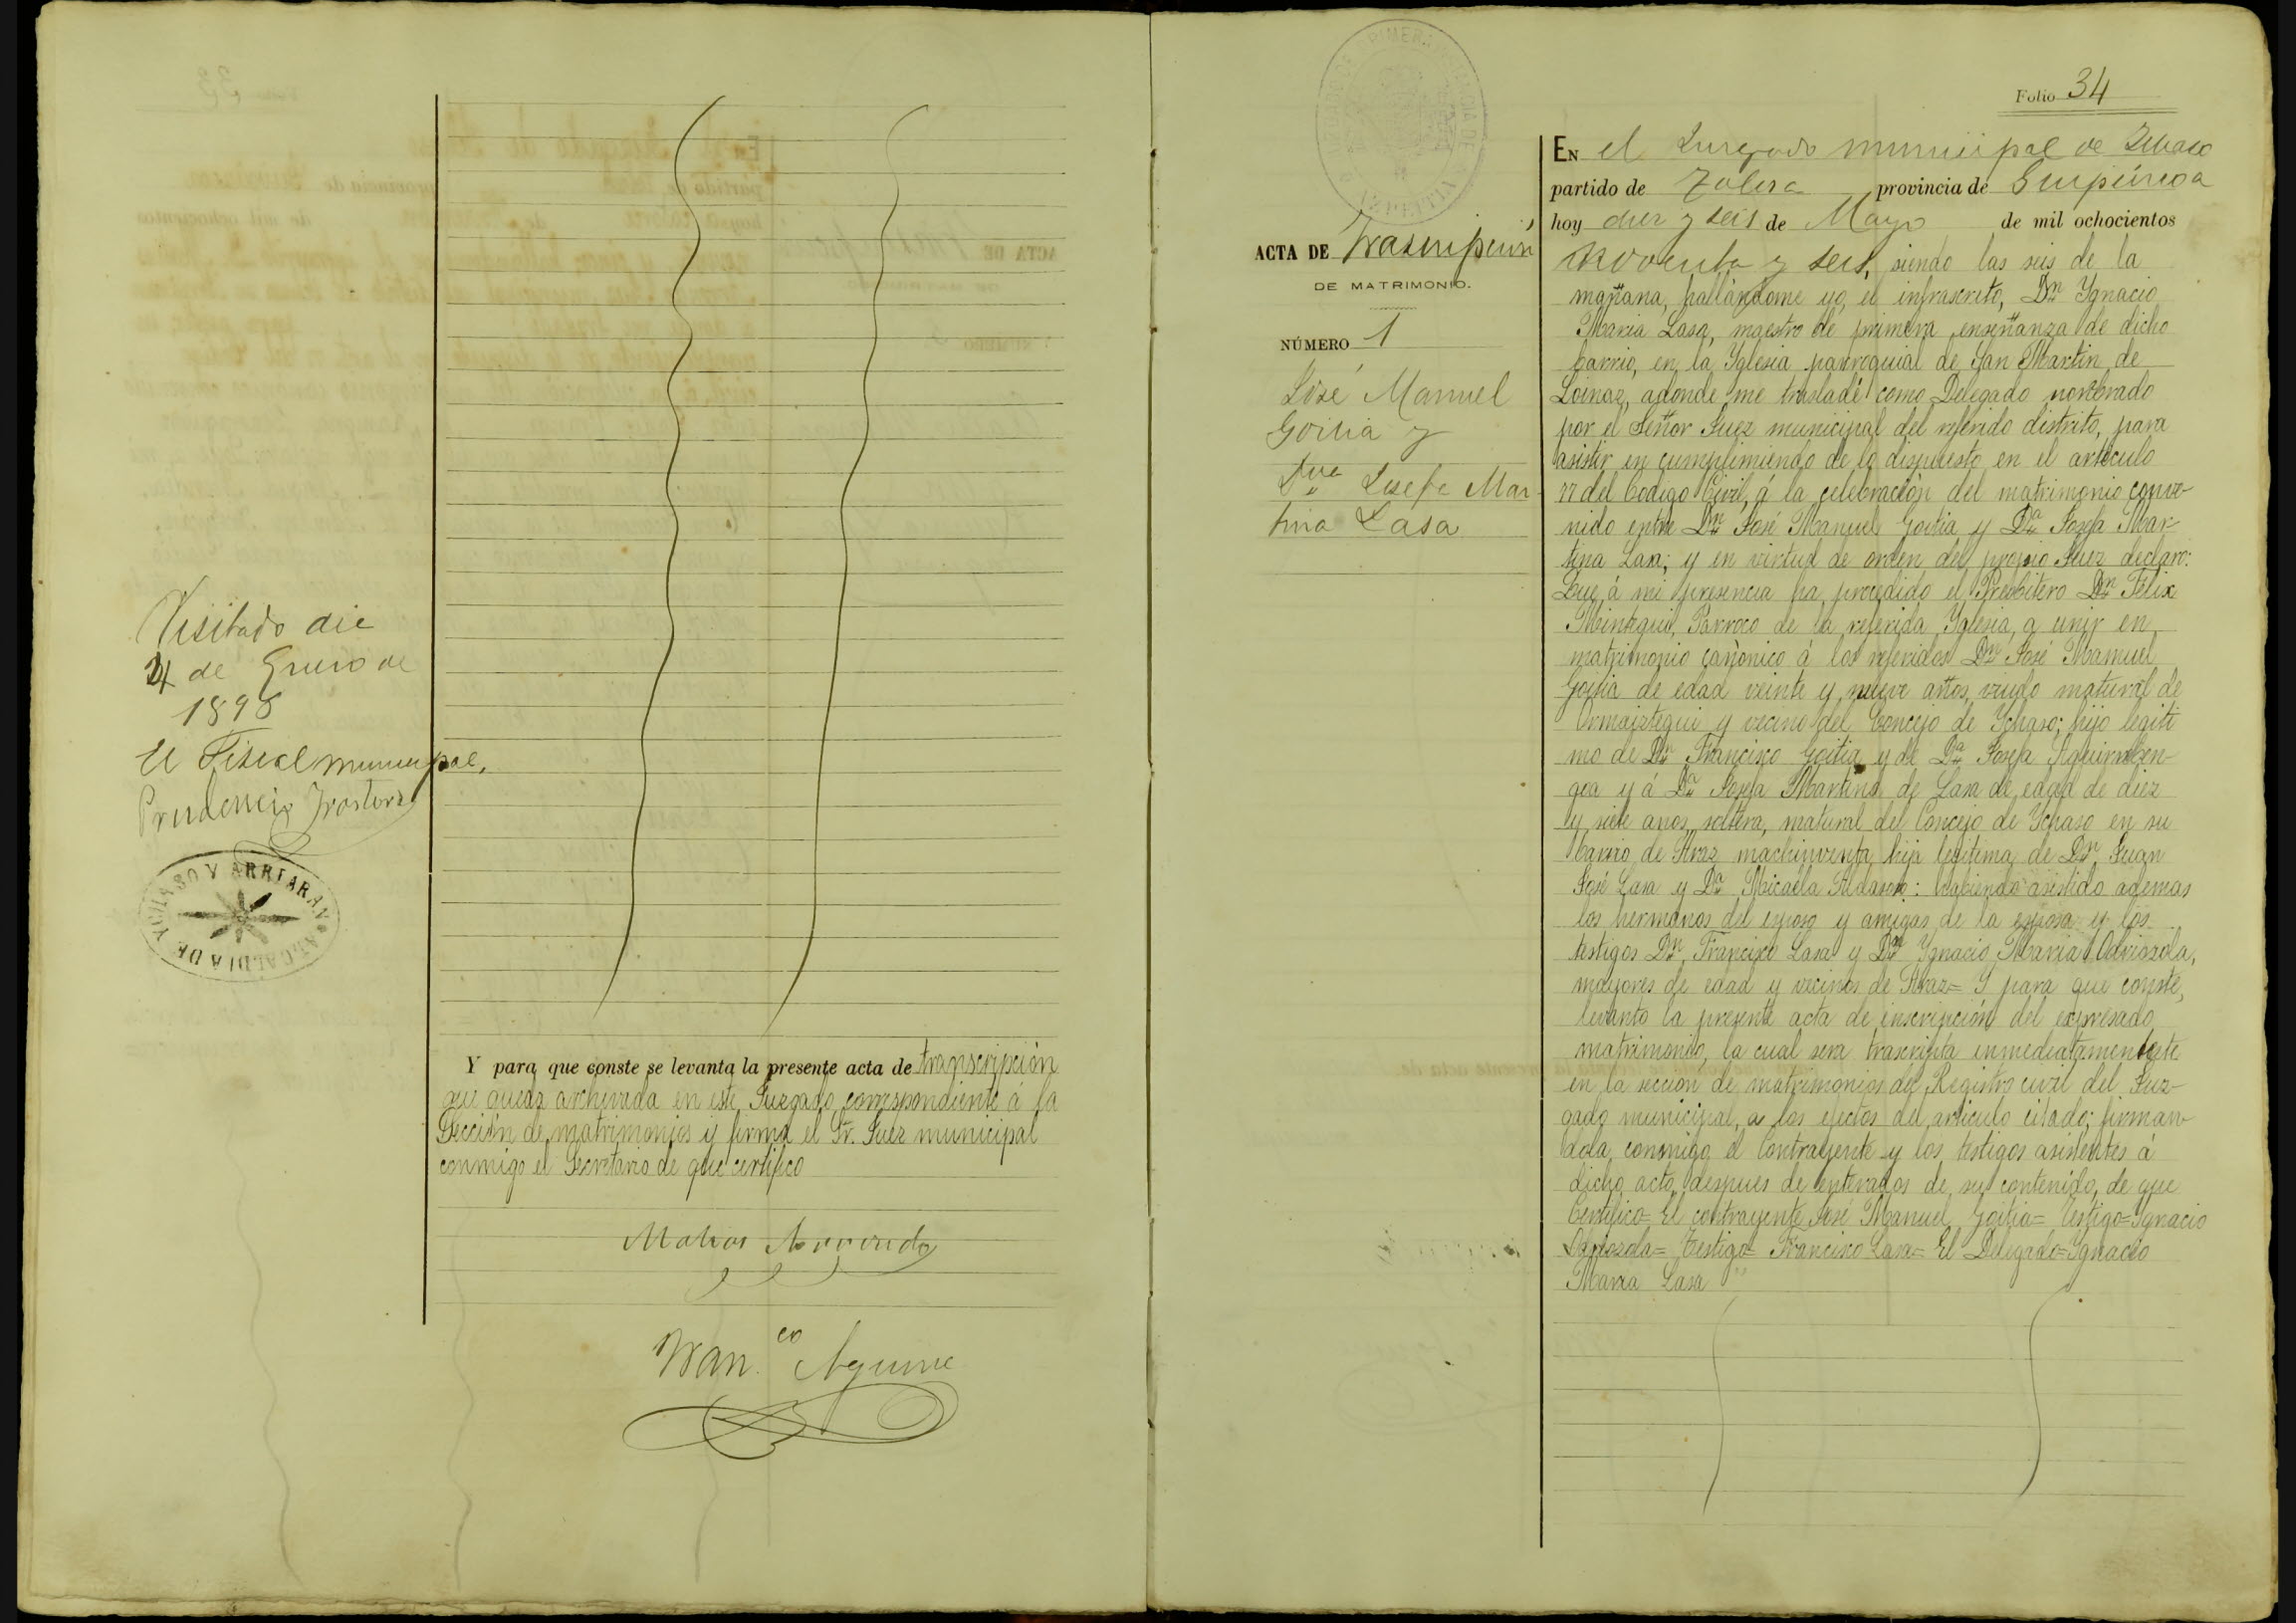 Visitado dia
24 de Enero de
1898
El Fiscal municipal,
Prudencio
ALCALDIA DE YCHASO Y ARRIARAN
Y para que conste se levanta la presente acta de transcripción
que queda archivada en este Juzgado correspondiente á la
Sección de matrimonios y firma el Sr. Juez municipal
conmigo el Secretario de que certifico
Matias
Fran.co Aguirre
Folio 34
ACTA DE Trascripción
DE MATRIMONIO.
NÚMERO 1
José Manuel
Goitia y
Josefa Mar
tina Lasa
EN el Juzgado municipal de Ichaso
partido de Tolosa provincia de Guipúzcoa
hoy diez y seis de Mayo de mil ochocientos
noventa y seis, siendo las seis de la
mañana, hallándome yo, el infrascrito, Dn Ygnacio
Maria Lasa, maestro de primera enseñanza de dicho
barrio, en la Yglesia parroquial de San Martin de
Loinaz, adonde me trasladé como Delegado nombrado
por el Señor Juez municipal del referido distrito, para
asistir en cumplimiendo de lo dispuesto en el articulo
77 del Codigo Civil, á la celebración del matrimonio conve-
nido entre Dn José Manuel Goitia y Da Josefa Mar-
tina Lasa; y en virtud de orden del propio Juez declaro:
Que á mi presencia ha procedido el Presbitero Dn Felix
Mintegui, Parroco de la referida Yglesia, a unir en
matrimonio canonico á los referidos Dn José Manuel
Goitia de edad veinte y nueve años, viudo natural de
Ormaiztegui y vecino del Concejo de Ychaso; hijo legiti
mo de Dn Francisco Goitia y de Da Josefa Aguirreben-
goa y á Da Josefa Martina de Lasa de edad de diez
y siete años, soltera, natural del Concejo de Ychaso en su
barrio de Araz machinventa, hija legitima de Dn Juan
José Lasa y Da Micaela Aldasoro: habiendo asistido ademas
los hermanos del esposo y amigas de la esposa y los
testigos Dn Francisco Lasa y Dn Ygnacio Maria Odriozola,
mayores de edad y vecinos de Araz= Y para que conste,
levanto la presente acta de inscripción del expresado
matrimonio, la cual sera trascripta inmediatamentete
en la sección de matrimonios del Registro civil del Juz-
gado municipal, a los efectos del articulo citado; firman-
dola conmigo el Contrayente y los testigos asistentes á
dicho acto, despues de enterados de su contenido, de que
Certifico= El contrayente José Manuel Goitia= Testigo= Ygnacio
Odriozola= Testigo= Francisco Lasa= El Delegado= Ygnacio
Maria Lasa"